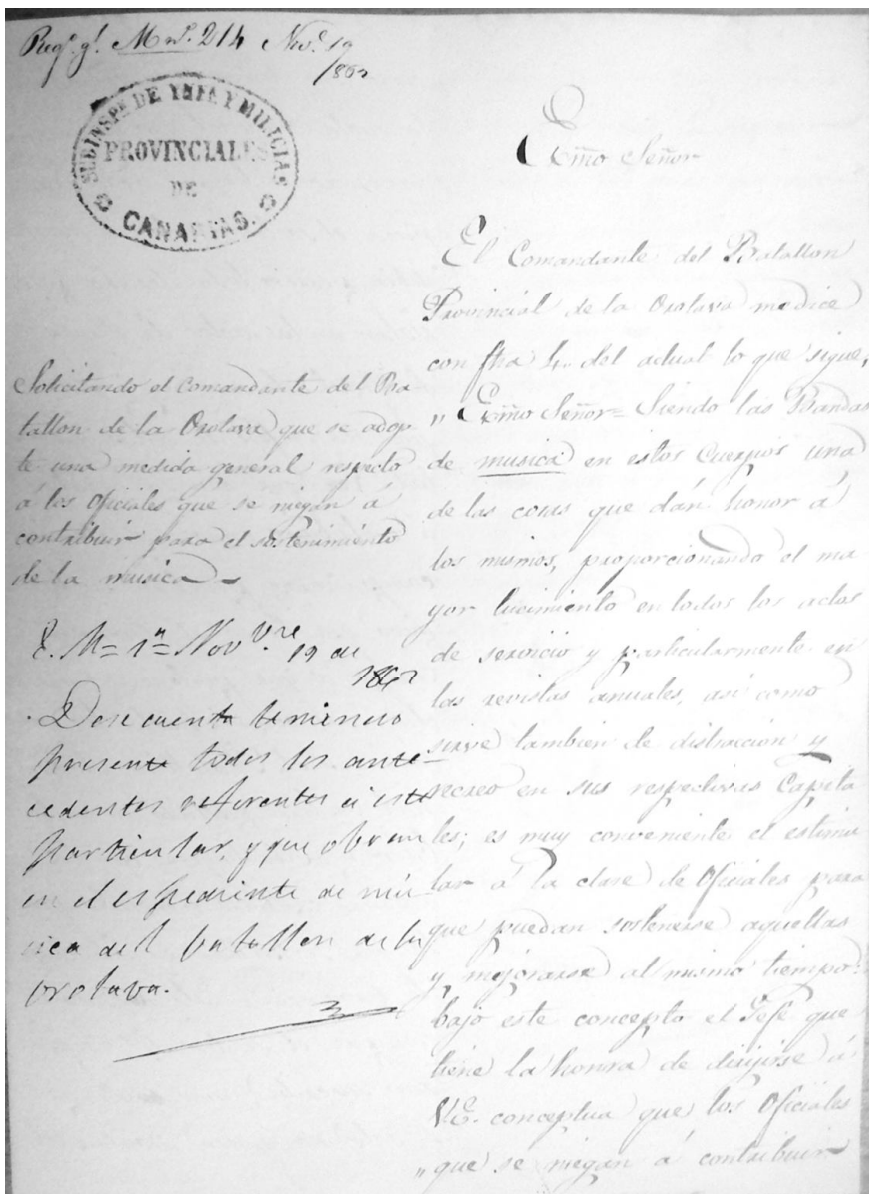 Regº gl. M nº. 214 Nov.e 19
/862
SUBINSPN DE YNFA Y MILICIAS
PROVINCIALES
DE
CANARIAS.
Solicitando el Comandante del Ba-
tallon de la Orotava que se adop
te una medida general respecto
á los Oficiales que se niegan á
contribuir para el sostenimiento
de la musica =
E. M = 1ª = Novbre. 19 de
1862
Dese cuenta teniendo
presente todos los ante-
cedentes referentes á este
particular, y que obran
en el espediente de mú
sica del batallon de la
Orotava.
Exmo Señor
El Comandante del Batallon
Provincial de la Orotava me dice
con fha 4. del actual lo que sigue,
"Exmo Señor = Siendo las Bandas
de musica en estos Cuerpos una
de las cosas que dán honor á
los mismos, proporcionando el ma
yor lucimiento en todos los actos
de servicio y particularmente en
las revistas anuales, asi como
sirve tambien de distraccion y
recreo en sus respectivas Capita
les; es muy conveniente el estimu
lar á la clase de Oficiales para
que puedan sostenerse aquellas
y mejorarse al mismo tiempo:
bajo este concepto el Gefe que
tiene la honra de dirijirse á
V.E. conceptua que los Oficiales
"que se niegan á contribuir